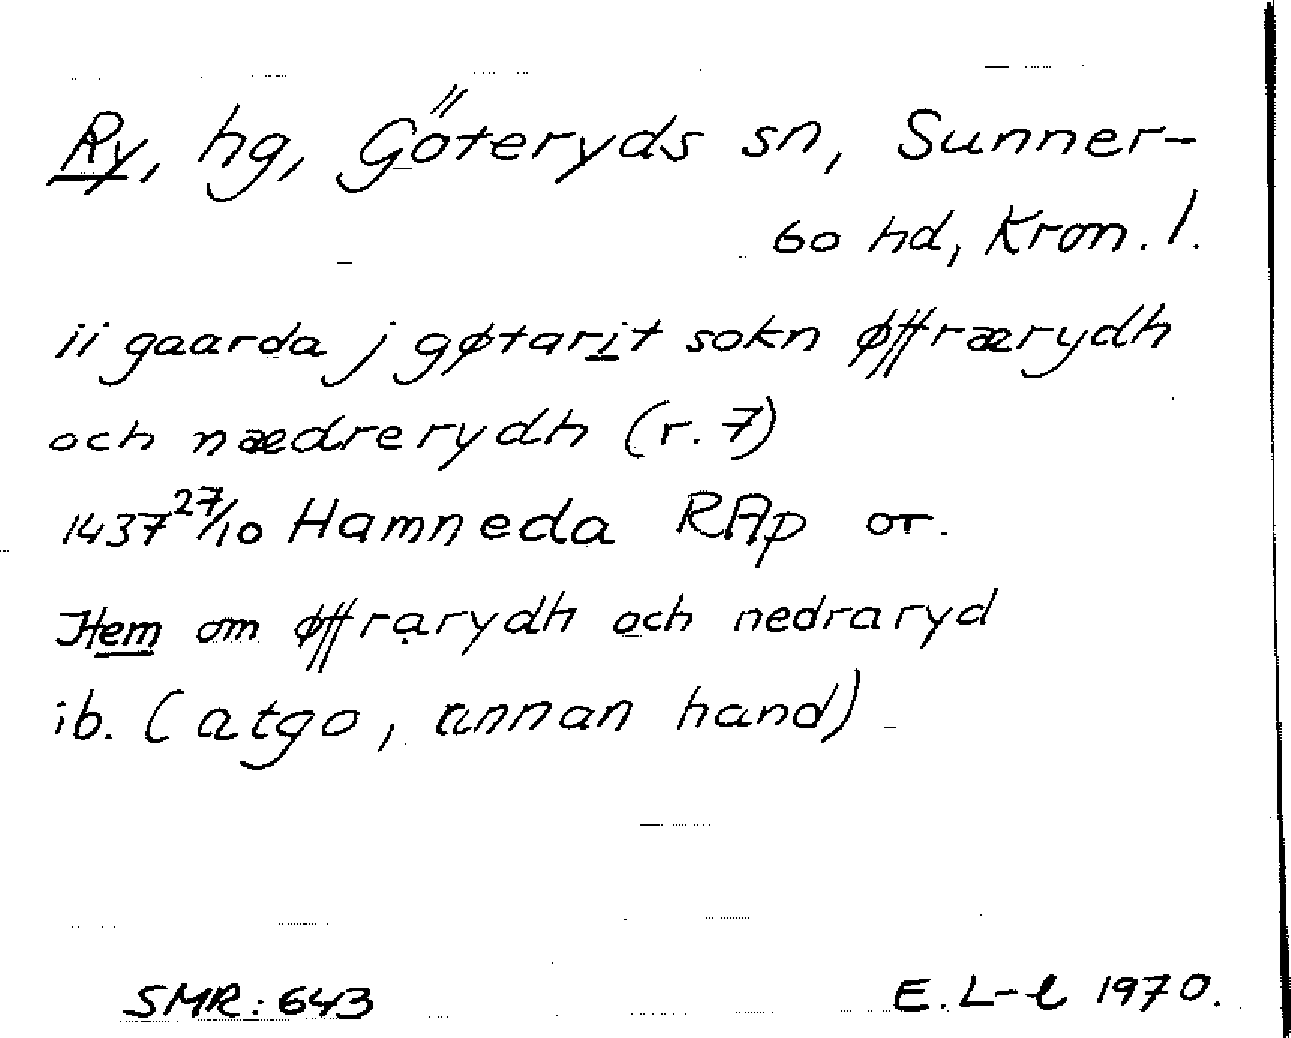 Ry, hg, Göteryds sn, Sunner-
bo hd, Kron. l.
ii gaarda j gøtarit sokn øffrærydh
och nædrerydh (r. 7)
1437 27/10 Hamneda RAp or.
Item om øffrarydh och nedraryd
ib. (atgo, annan hand)
SMR: 643
E. L-l 1970.